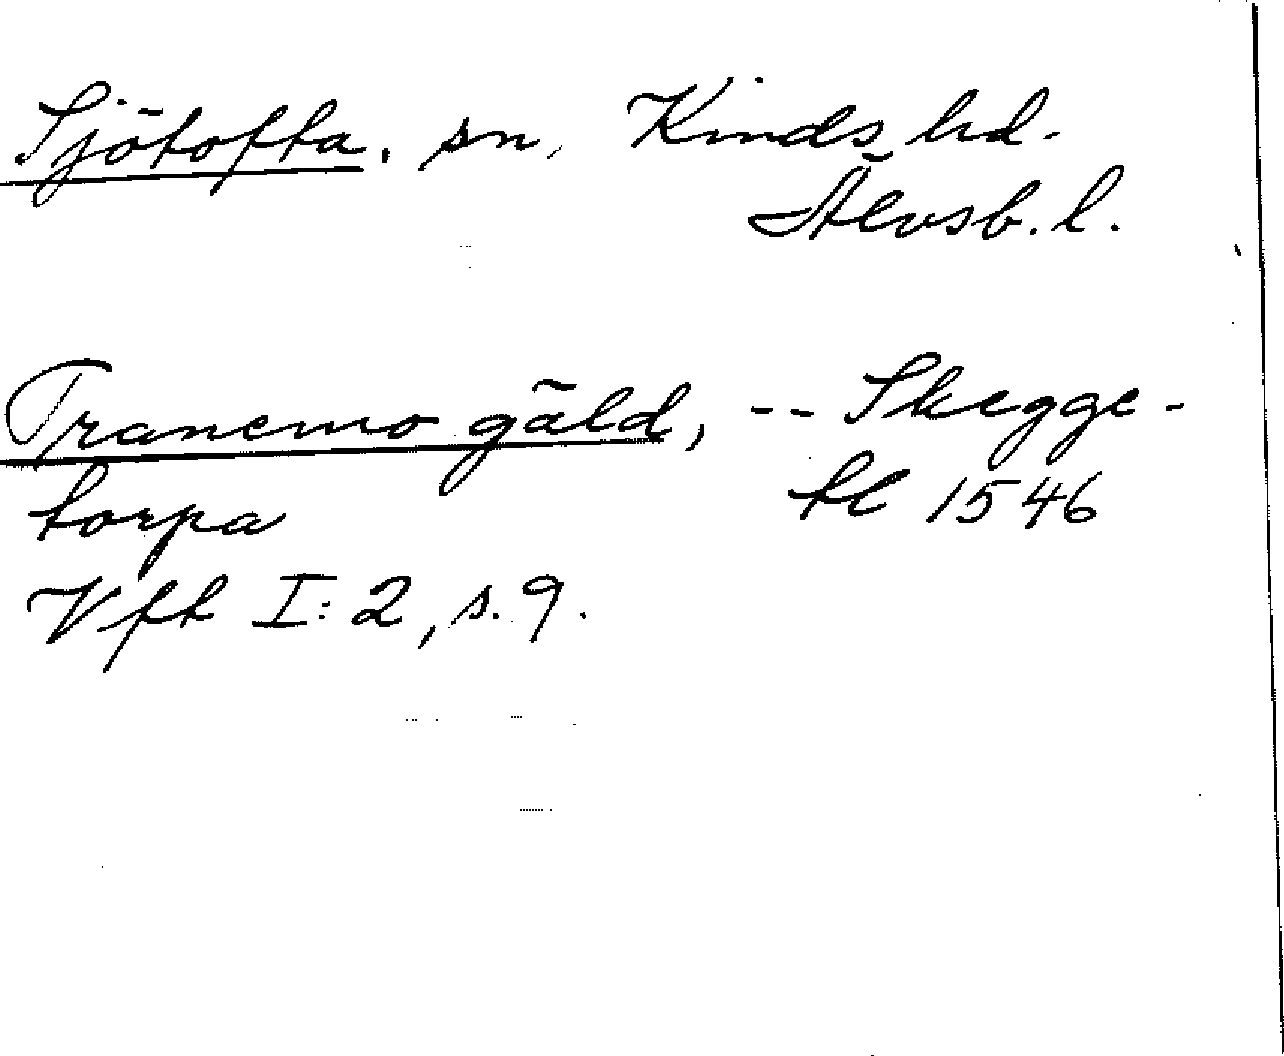 Sjötofta. sn, Kinds hd.
Älvsb. l.
Tranemo gäld, -- Skegge-
torpa tl 1546
Vft I: 2, s. 9.